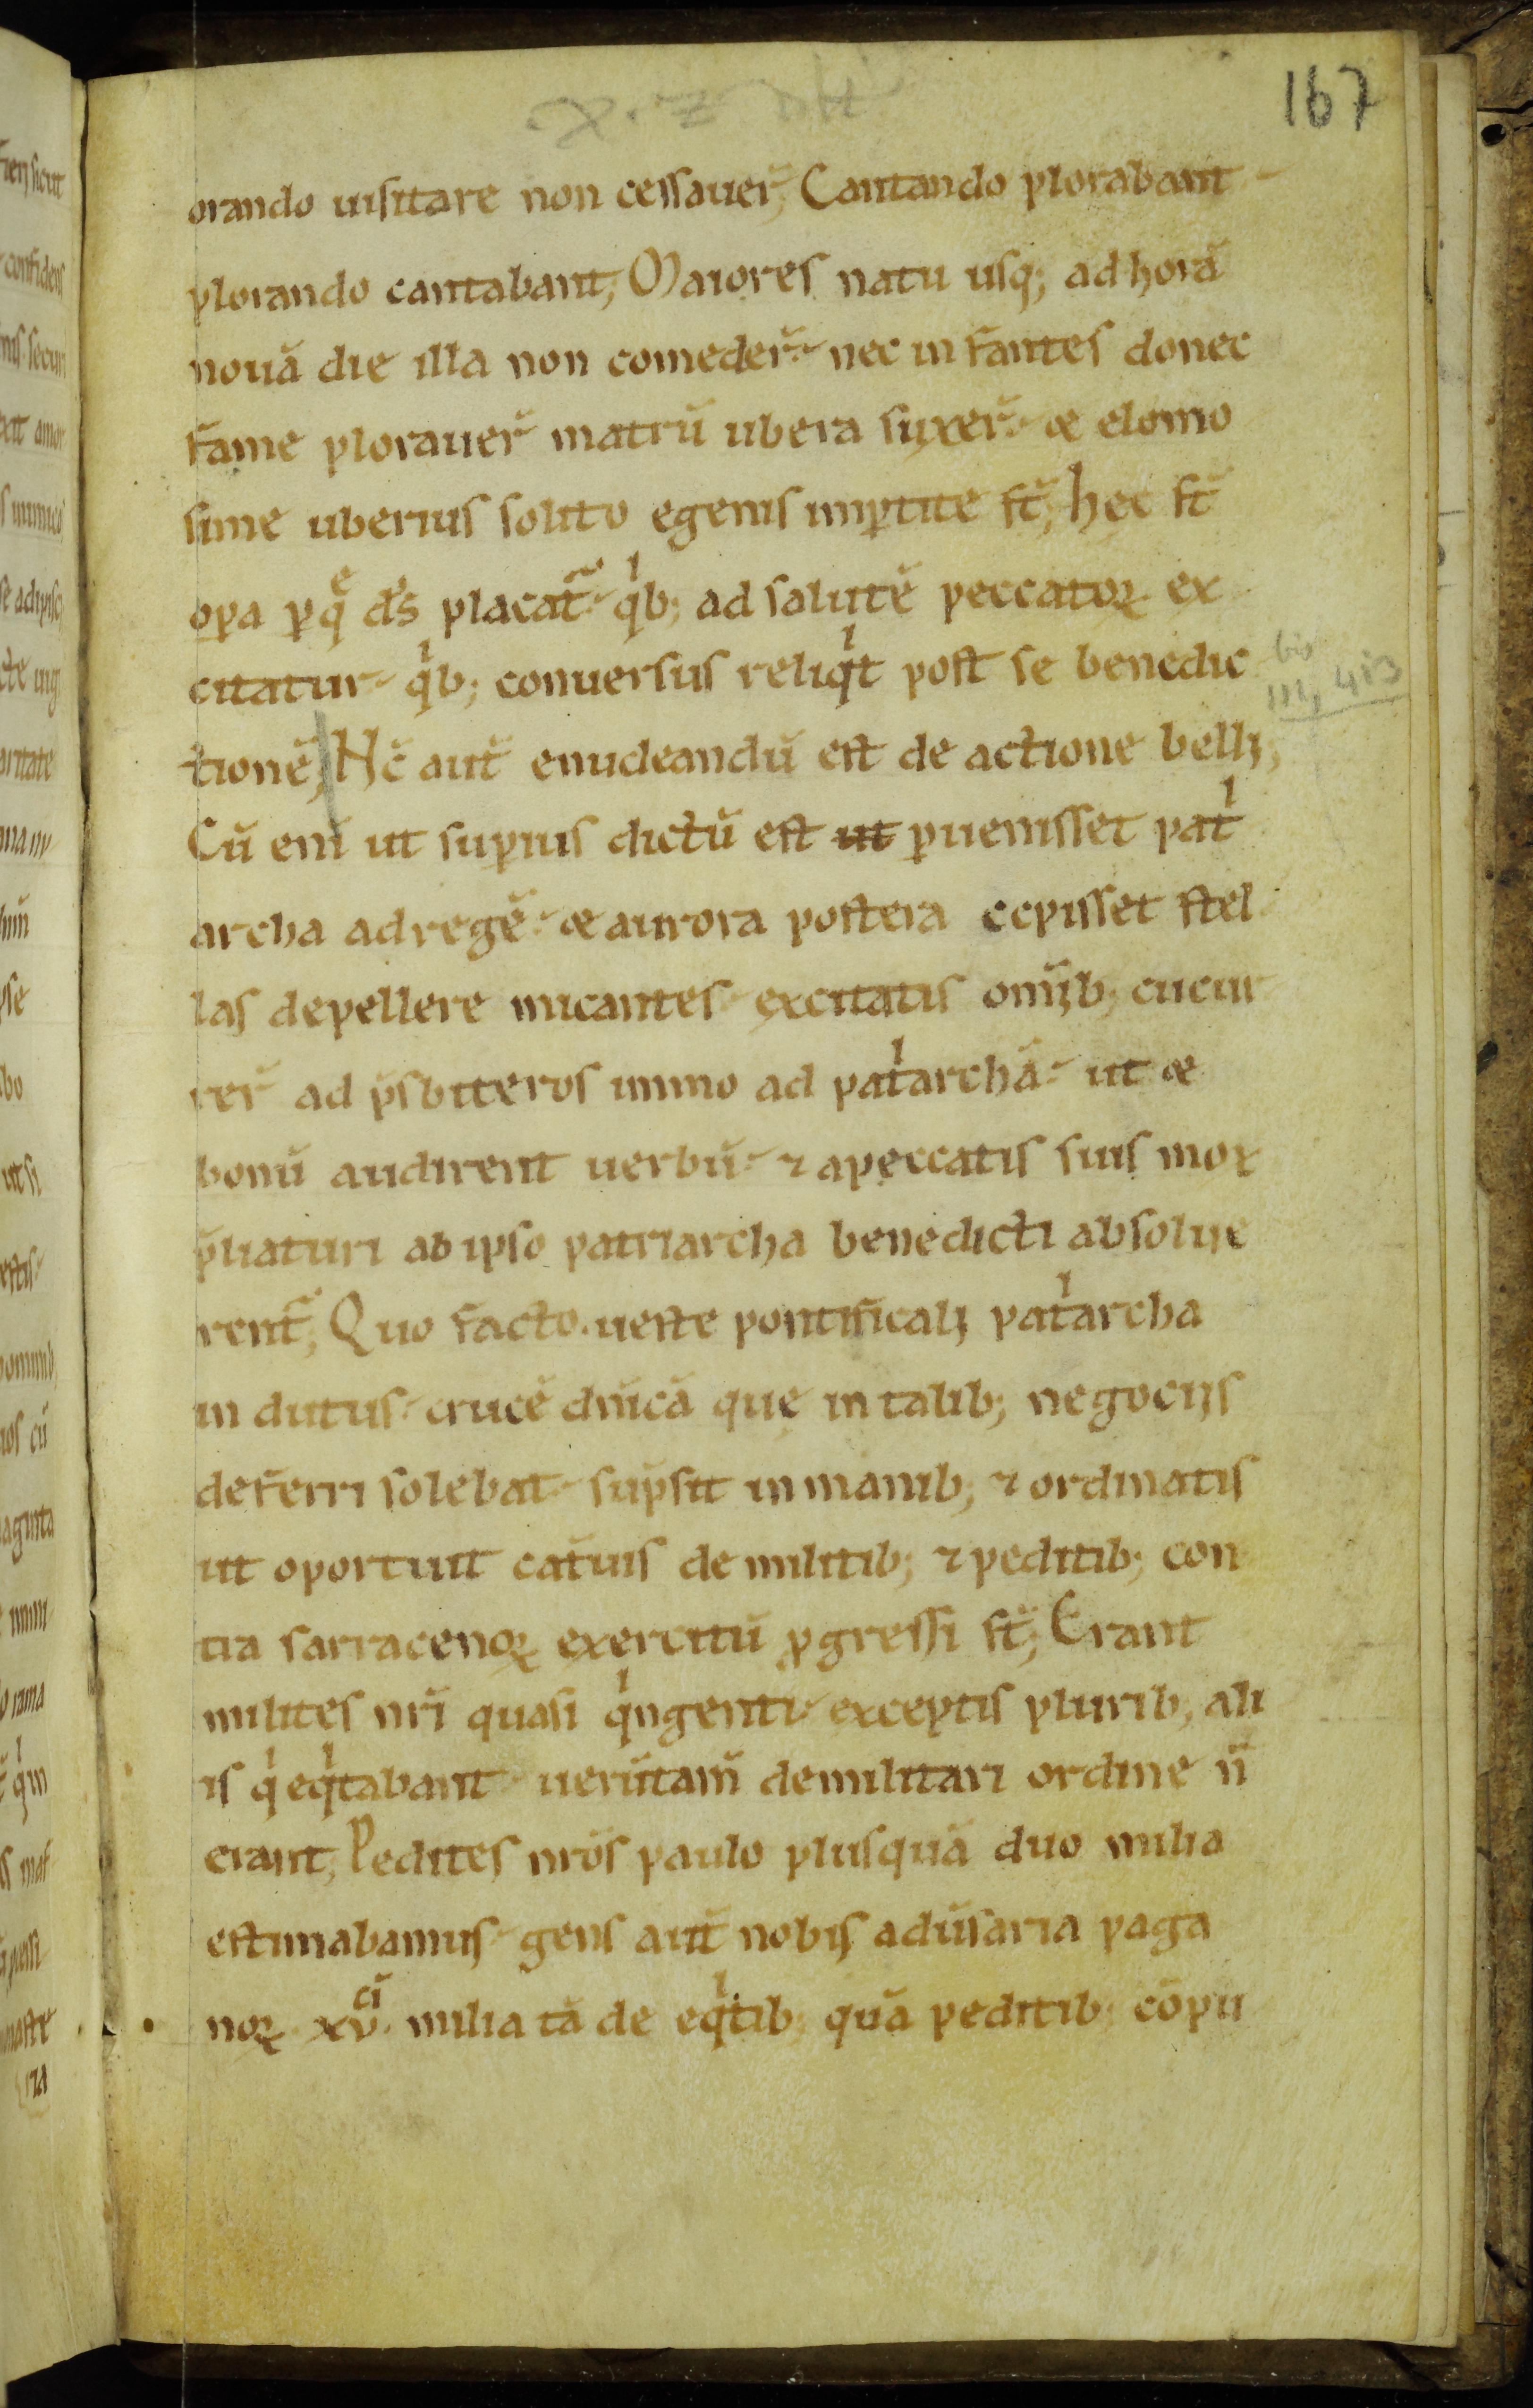 167
orando uisitare non cessauer̄; Cantando plorabant
plorando cantabant; Maiores natu usq; ad horā
nouā die illa non comeder̄ nec infantes donec
fame plorauer̄ matrū ubera suxer̄ & elemo
sine uberius solito egenis inꝑtite st̄; hec st̄
oꝑa ꝑ qͤ ds̄ placat᷑ qͥb; ad salutē peccatoꝝ ex
citatur qͥb; conuersus reliqͥt post se benedic
tionē; Nc̄ aut̄ enucleandū est de actione belli;
Cū eni̅ ut suꝑius dictū est ut ꝑuenisset patͥ
archa ad regē & aurora postera cepisset stel
las depellere micantes excitatis omīb; cucur
rer̄ ad p̄sbiteros immo ad patͥarchā ut &
bonū audirent uerbū ⁊ a peccatis suis mox
p̄liaturi ab ipso patriarcha benedicti absolue
rent᷑; Quo facto ueste pontificali patͥarcha
indutus crucē dn̄icā que in talib; negociis
deferri solebat sūpsit in manib; ⁊ ordinatis
ut oportuit cat̄uis de militib; ⁊ peditib; con
tra sarracenoꝝ exercitū ꝓgressi st̄; Erant
milites nr̄i quasi qͥngenti exceptis plurib; ali
is qͥ eqͥtabant uerūtam̄ de militari ordine n̄
erant; Pedites nr̄os paulo plusquā duo milia
estimabamus gens aut̄ nobis aduūsaria paga
noꝝ xv̅ cī milia tā de eqͥtib; quā peditib; cōpu